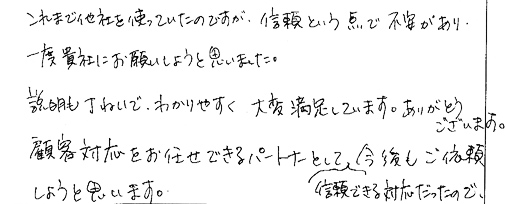 これまで他社を使っていたのですが、信頼という点で不安があり、
一度貴社にお願いしようと思いました。
説明もていねいで、わかりやすく 大変満足しています。ありがとう
ございます。
顧客対応をお任せできるパートナーとして、今後もご依頼
しようと思います。
信頼できる対応だったので、